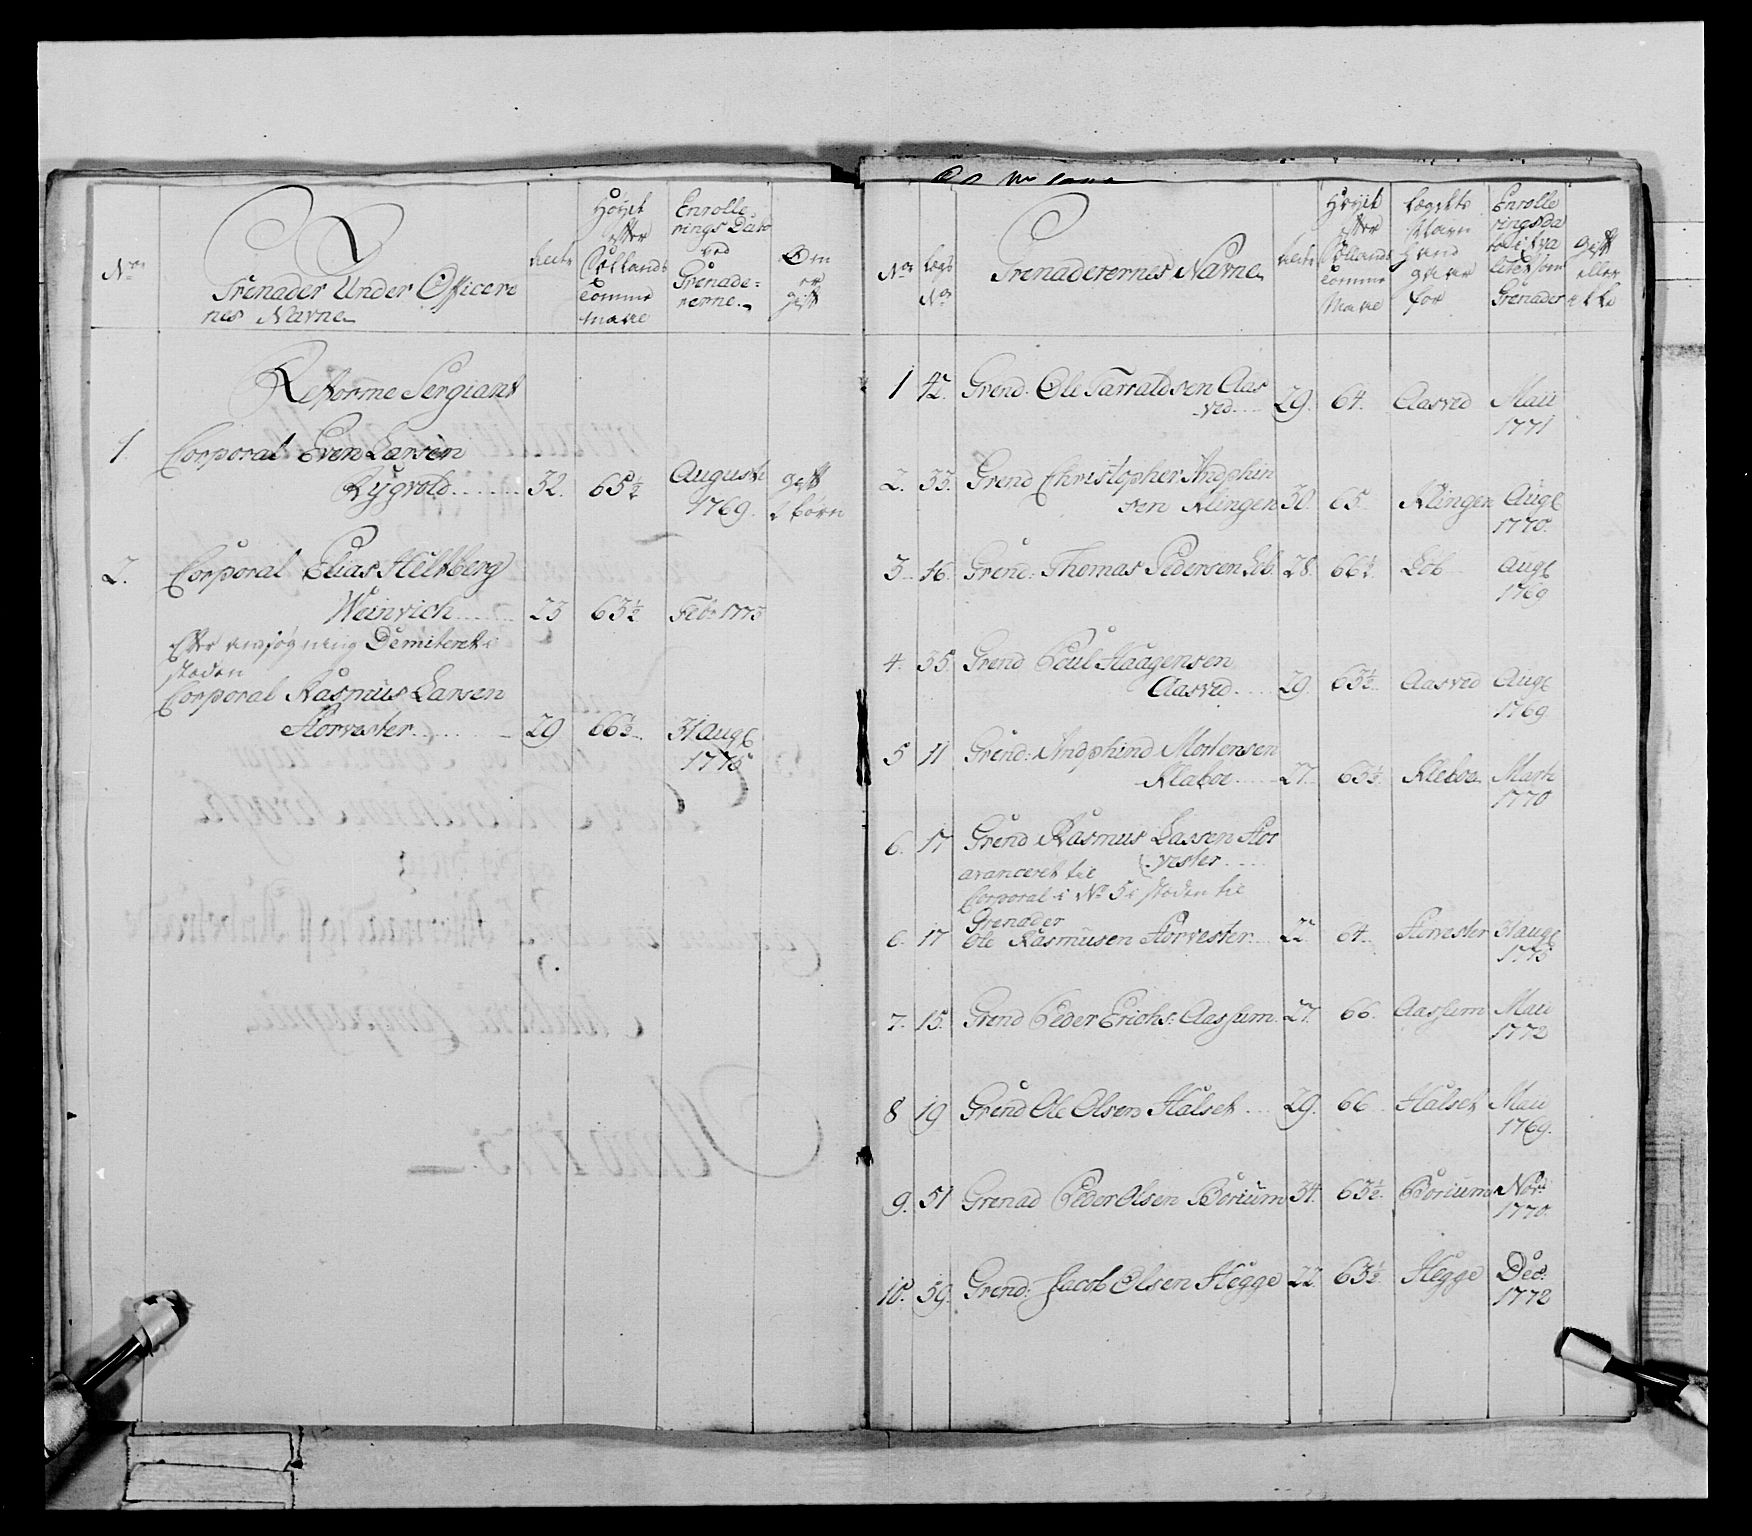 No.
Grenader Under Officere
nes Navne
Høyet
efter
Sællands
Tomme
Maal
Enrolle
rings Dato
ved
Grenade-
rerne.
Om
er
gift
Reforme Sergiant
1. Corporal Even Larsen
Rygvold 32. 65½ Augusti 1769. gift 2 børn
2. Corporal Elias Heltberg
Weinrich 23 63½ Febr 1773
Efter ansøgning Demiteret i
steden
Corporal Rasmus Larsen
Storvester 29 66½ 31 Aug 1775
Anno 1775
No Lægs No
Grenaderernes Navne
Høyet
efter
Sællands
Tomme
Maal
Lægdets
Navn
hand
staaer
for
Enrolle
ringsda
to
Grenader
gift
eller
ikke
1 42. Grend. Ole Tarraldsen Aas
ved 29. 64. Aasved Maii
1771
2. 33. Grend Christopher Indphin
sen Klingen 30. 65. Klingen Aug
1770.
3 46. Grend: Thomas Pedersen Lob. 28. 66½. Lob Aug
1769
4. 35. Grend Poul Haagensen
Aasved 29. 63½ Aasved Aug
1769
5 11 Grend: Indphind Mortensen
Kleboe 27. 63½ Kleboe Marti
1770
6. 17 Grend Rasmus Lassen Stor
vester
avanceret til
Corporal i No 5 i steden til
Grenader
6. 17 Ole Rasmusen Storvester 22 64 Storvester 31 Aug
1775
7. 15. Grend Peder Erichs: Aassum. 27. 66. Aassum Maii
1772
8 19 Grend Ole Olsen Halset 29. 66 Halset Maii
1769.
9. 51 Grenad Peder Olsen Borium 34. 63½. Borium Nov:
1770.
10. 59. Grend: Jacob Olsen Hegge 22 63½ Hegge Dec:
1772